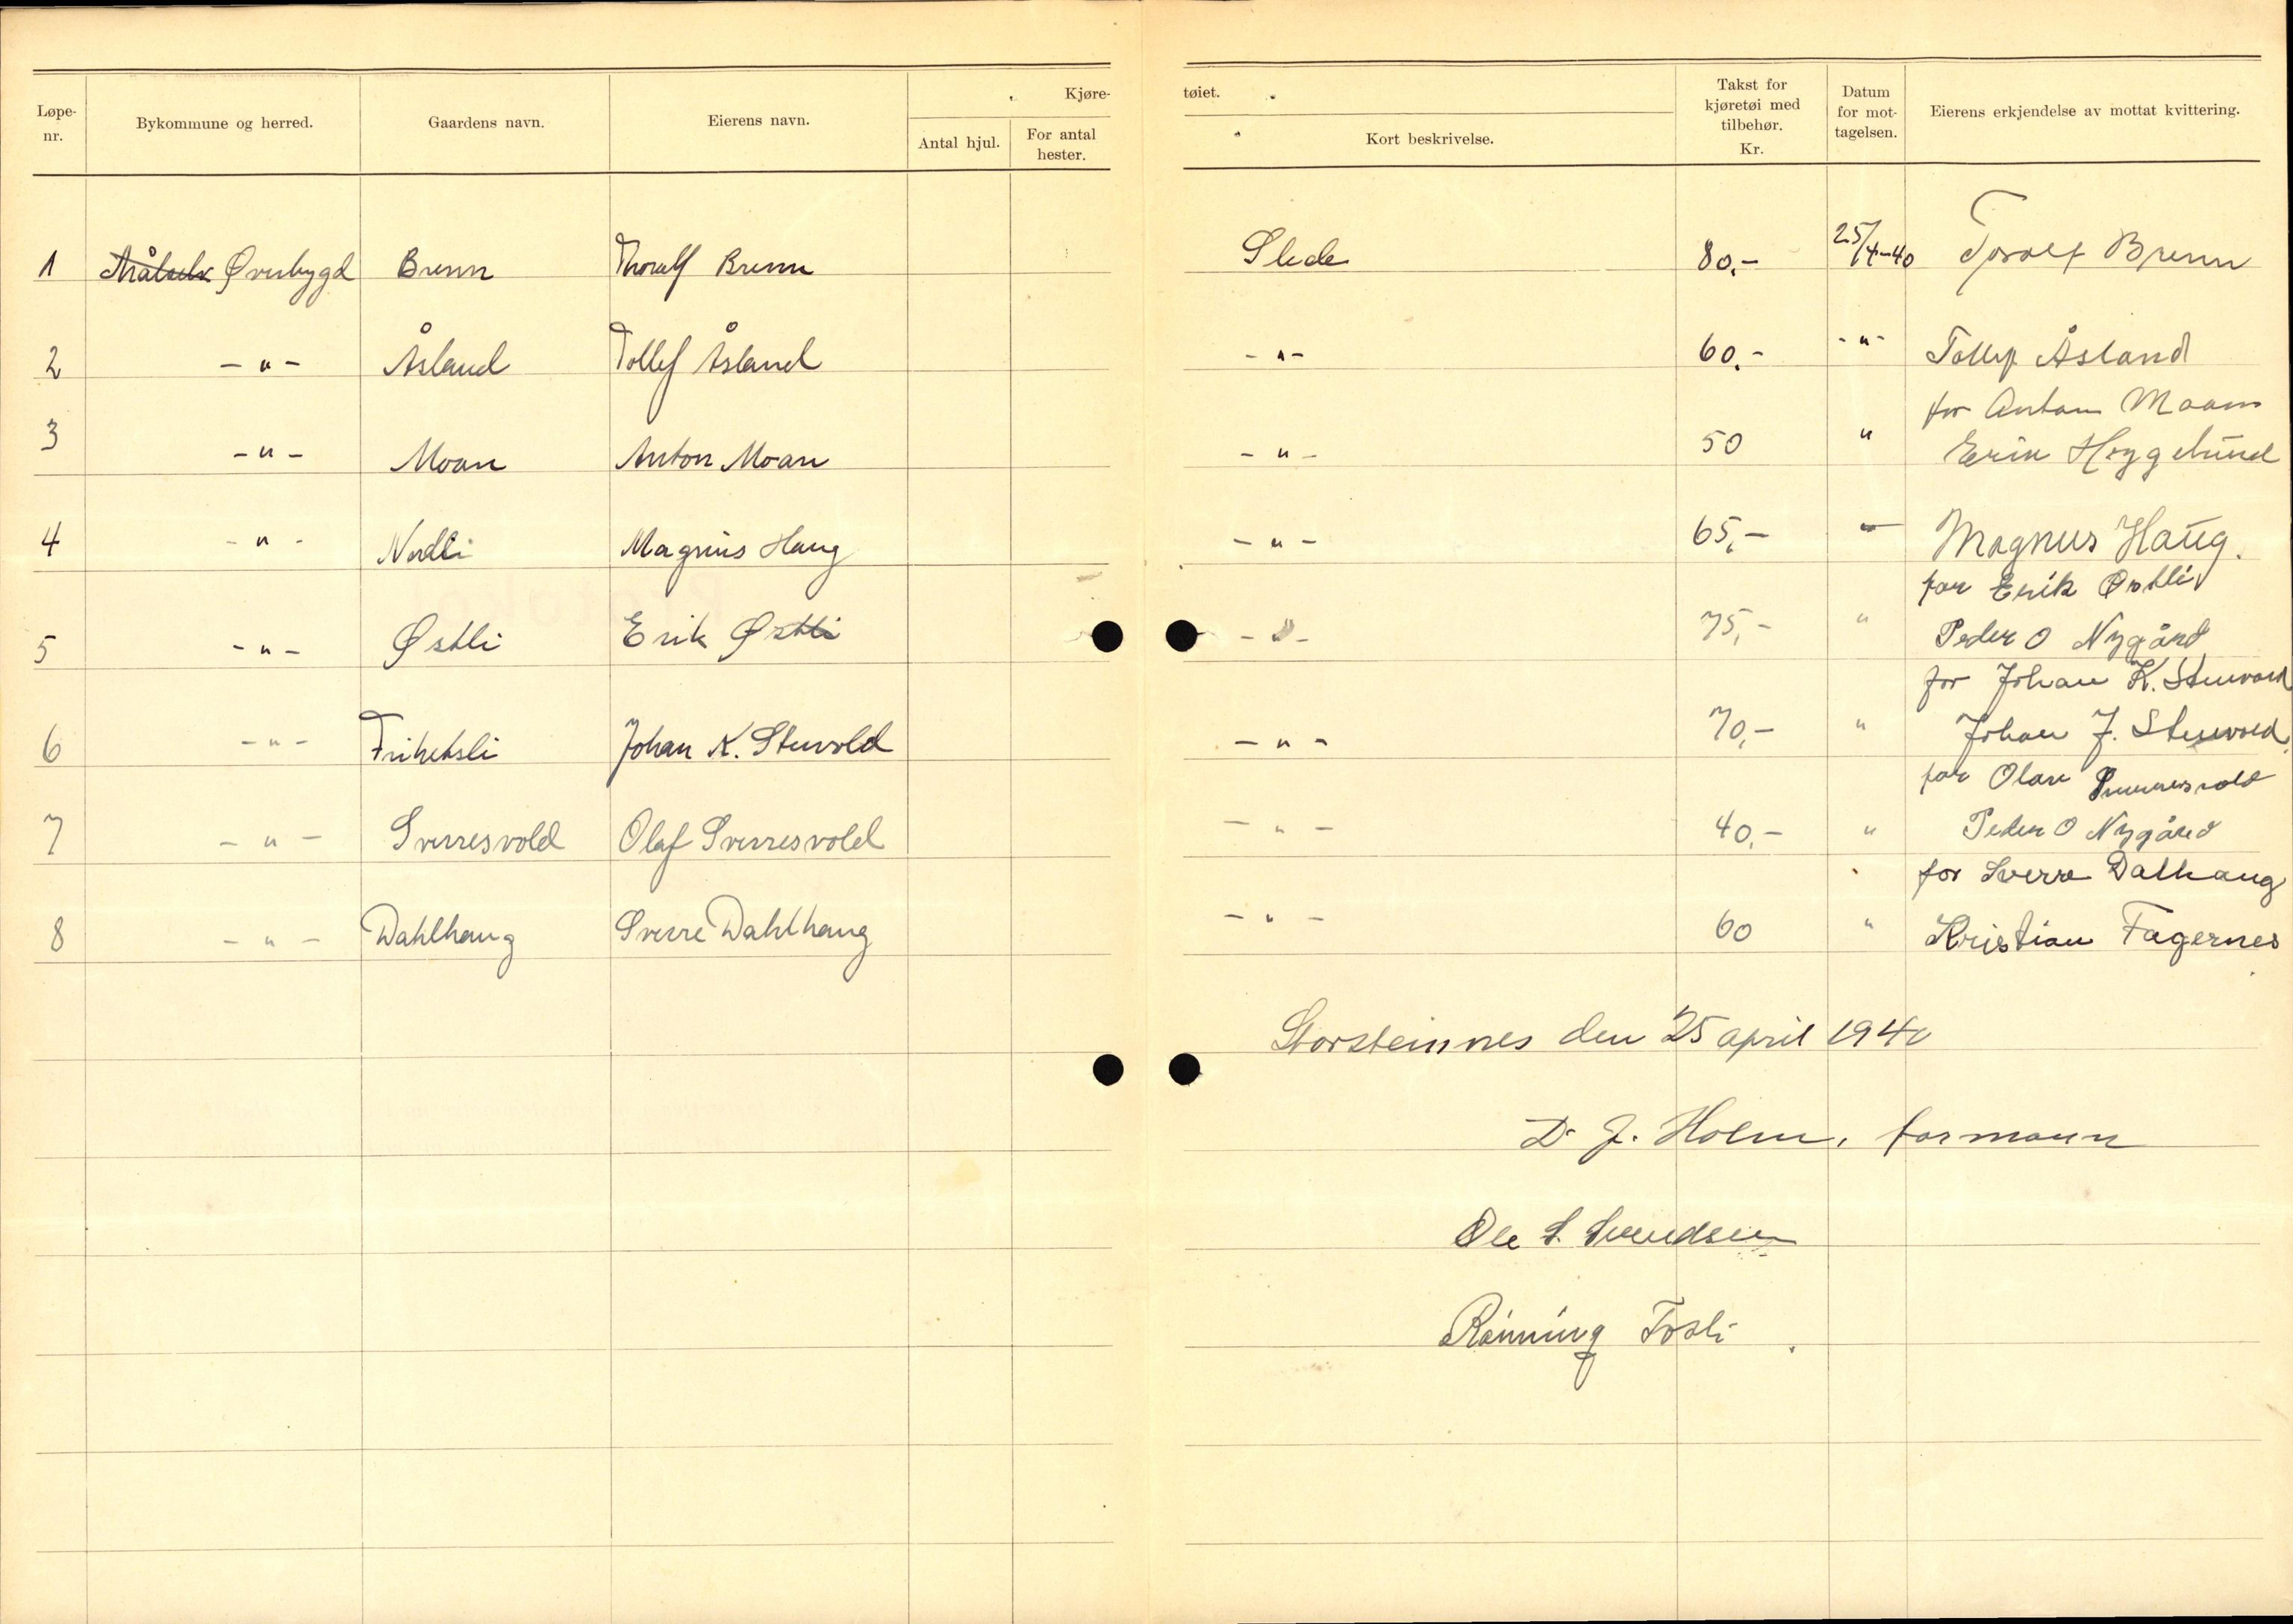 Løpe-nr. Bykommune og herred. Gaardens navn. Eierens navn. Kjøre-tøiet. Takst for kjøretøi med tilbehør. Kr. Datum for mot-tagelsen. Eierens erkjendelse av mottat kvittering.
Antal hjul. For antal hester. Kort beskrivelse.
1 Målselv Øverbygd Brenn Thoralf Brenn Slede 80.- 25/4-40 Toralf Brenn
2 - " - Åsland Tollef Åsland - " - 60.- - " - Tollef Åsland
for Anton Moan
3 - " - Moan Anton Moan - " - 50 " Erik Heggelund
4 - " - Nordli Magnus Haug - " - 65,- " Magnus Haug.
for Erik Østli
5 - " - Østli Erik Østli - " - 75,- " Peder O Nygård
for Johan K. Stenvold
6 - " - Frihetsli Johan K. Stenvold - " - 70,- " Johan J. Stenvold
for Olav Sverresvold
7 - " - Sverresvold Olaf Sverresvold - " - 40,- " Peder O Nygård
for Sverre Dalhaug
8 - " - Dahlhaug Sverre Dahlhaug - " - 60 " Kristian Fagernes
Storsteinnes den 25 april 1940
D. J. Holm, formann
Ole S. Svendsen
Rønning Fosli